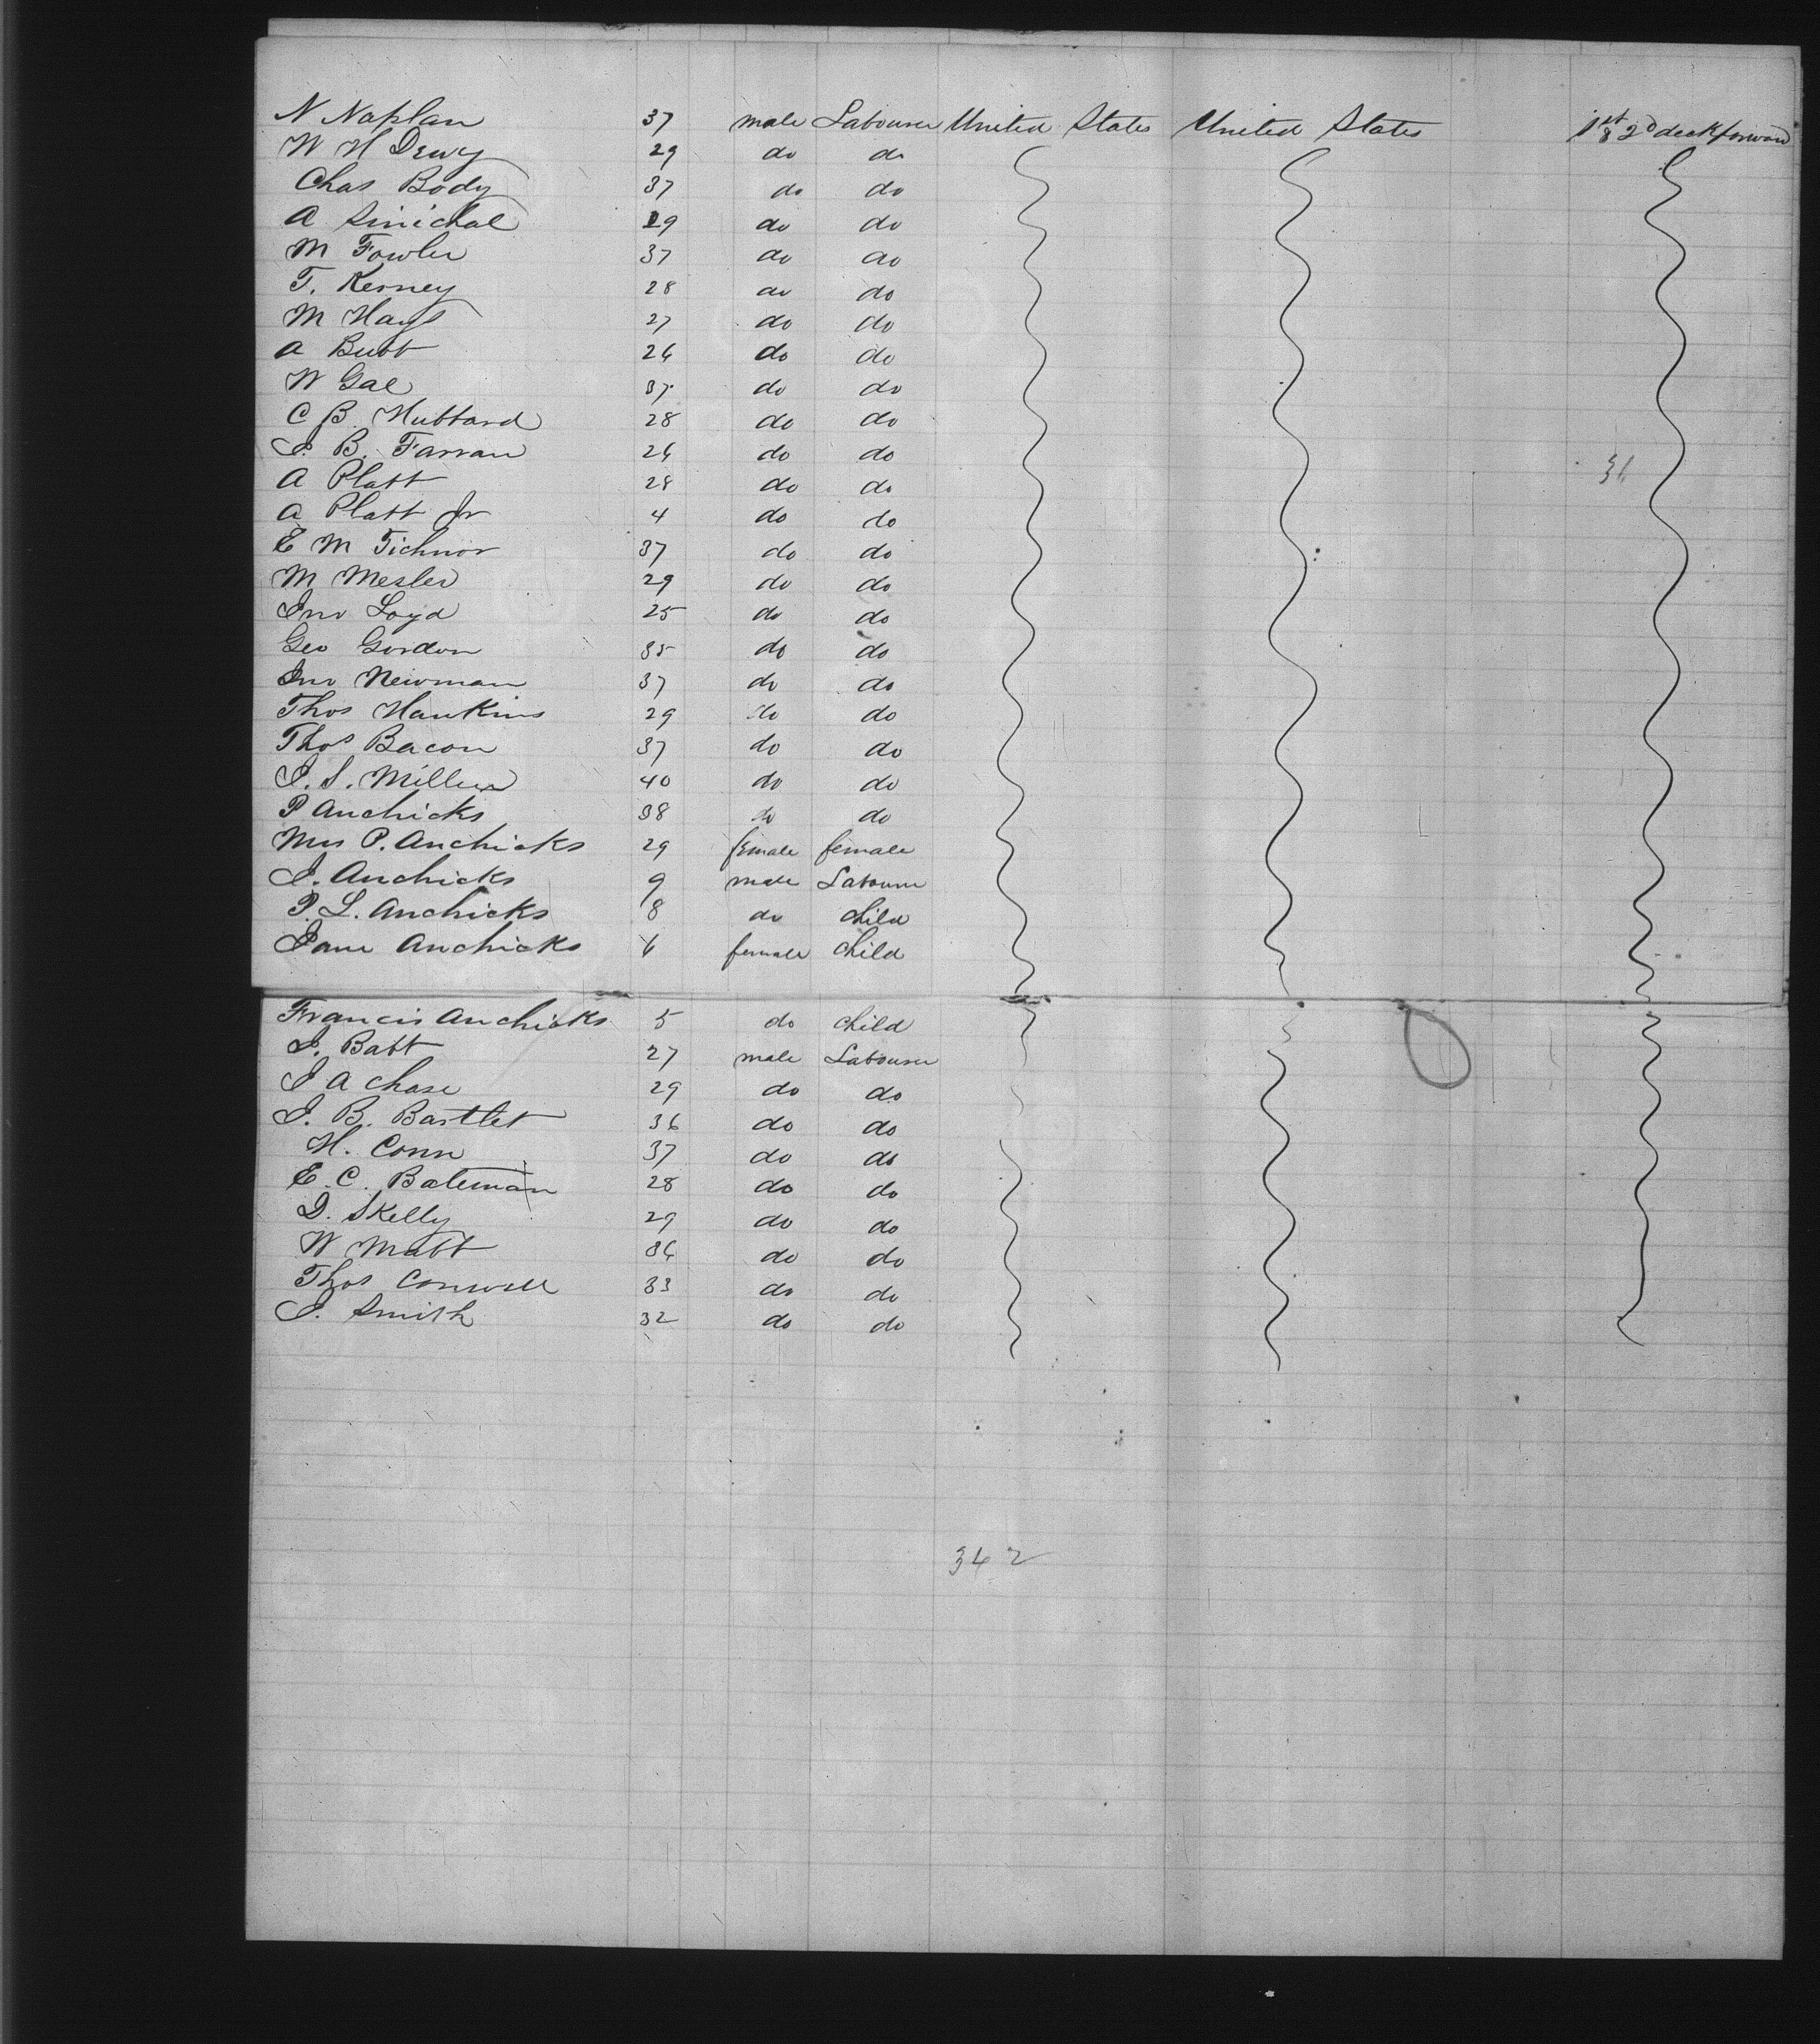 N Naplan 37 male Labourer United States United States 1st & 2d deck forward
W H Dewy 29 do do
Chas Body 37 do do
A Sinichal 29 do do
M Fowler 37 do do
T. Kerney 28 do do
M Hays 27 do do
A Butt 26 do do
W Gal 37 do do
C B. Hubbard 28 do do
J. B. Farran 26 do do
A Platt 28 do do
A Platt Jr 4 do do
E M Tichnor 37 do do
M Mesler 29 do do
Jno Loyd 25 do do
Geo Gordon 35 do do
Jno Newman 37 do do
Thos Hawkins 29 do do
Thos Bacon 37 do do
J. S. Miller 40 do do
P Anchicks 38 do do
Mrs P. Anchicks 29 female female
J. Anchicks 9 male Labourer
P. L. Anchicks 8 do child
Jane Anchicks 6 female child
Francis Anchicks 5 do child
J. Batt 27 male Labourer
J A Chase 29 do do
J. B. Bartlet 36 do do
H. Conn 37 do do
E. C. Bateman 28 do do
D. Skelly 29 do do
W Matt 36 do do
Thos Conwell 33 do do
J. Smith 32 do do
342